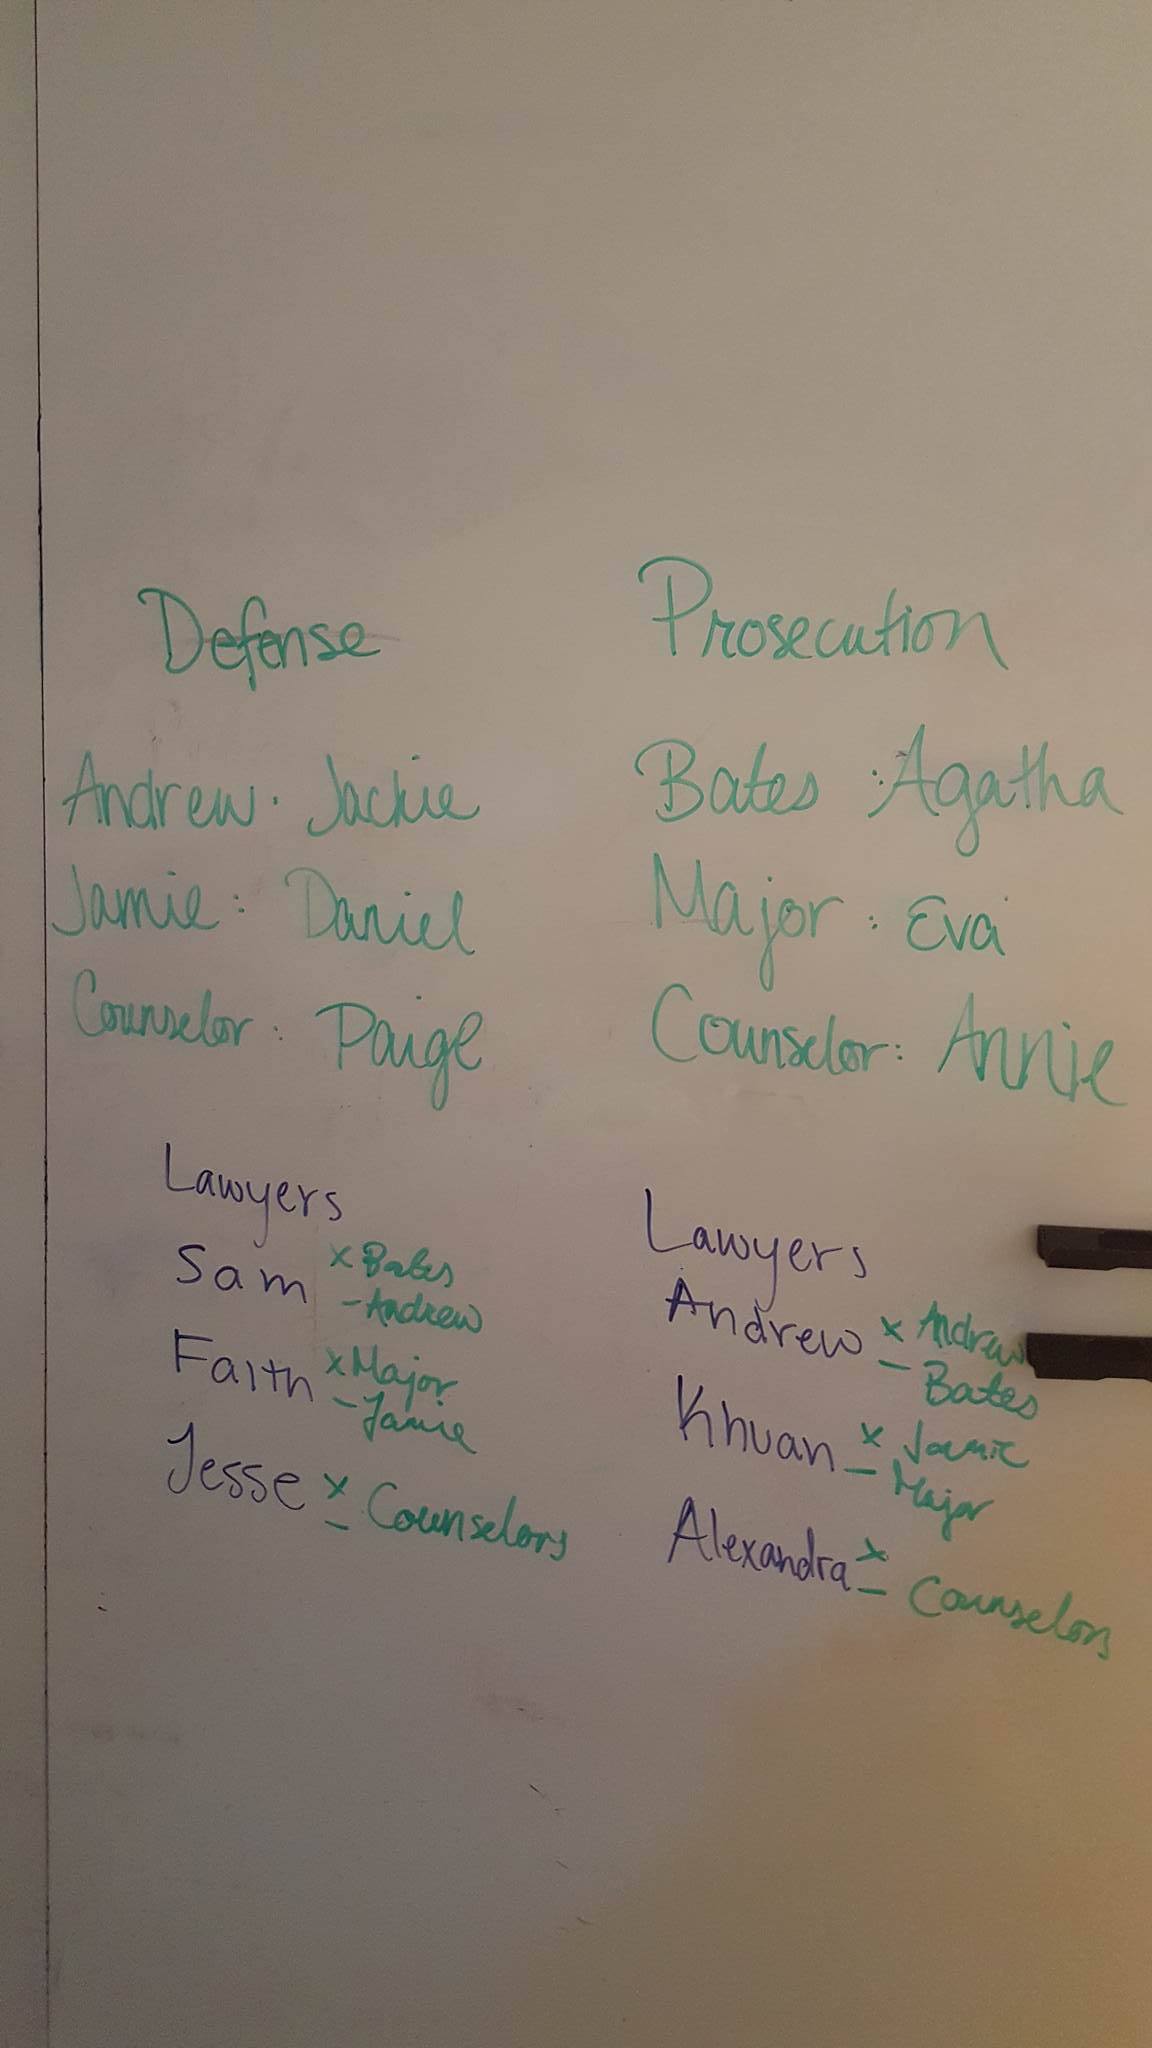 Defense
Andrew. Jackie
Jamie: Daniel
Counselor: Paige
Lawyers
Sam x Bates
- Andrew
Faith x Major
- Jamie
Jesse x
- Counselors
Prosecution
Bates : Agatha
Major : Eva
Counselor: Annie
Lawyers
Andrew x Andrew
- Bates
Khuan x Jamie
- Major
Alexandra x
- Counselors